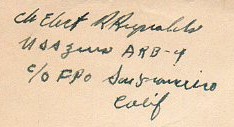 Ch Elect R Reynolds
USS Zeus ARB-4
c/o FPO San Francisco
Calif